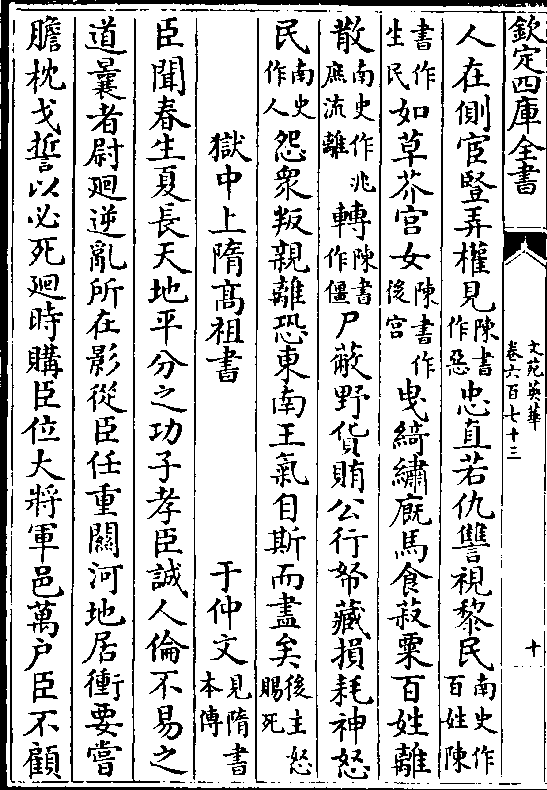 欽定四庫全書
文苑英華
卷六百七十三
十
人在側宦豎弄權見陳書作惡忠直若仇讐視黎民南史作百姓陳
書作生民如草芥宮女陳書作後宮曳綺繡廐馬食菽粟百姓離
散南史作兆庶流離轉陳書作僵尸蔽野貨賄公行帑藏損耗神怒
民南史作人怨衆叛親離恐東南王氣自斯而盡矣後主怒賜死
獄中上隋髙祖書 于仲文見隋書本傳
臣聞春生夏長天地平分之功子孝臣誠人倫不易之
道曩者尉廻逆亂所在影從臣任重關河地居衝要嘗
膽枕戈誓以必死廻時購臣位大將軍邑萬户臣不顧